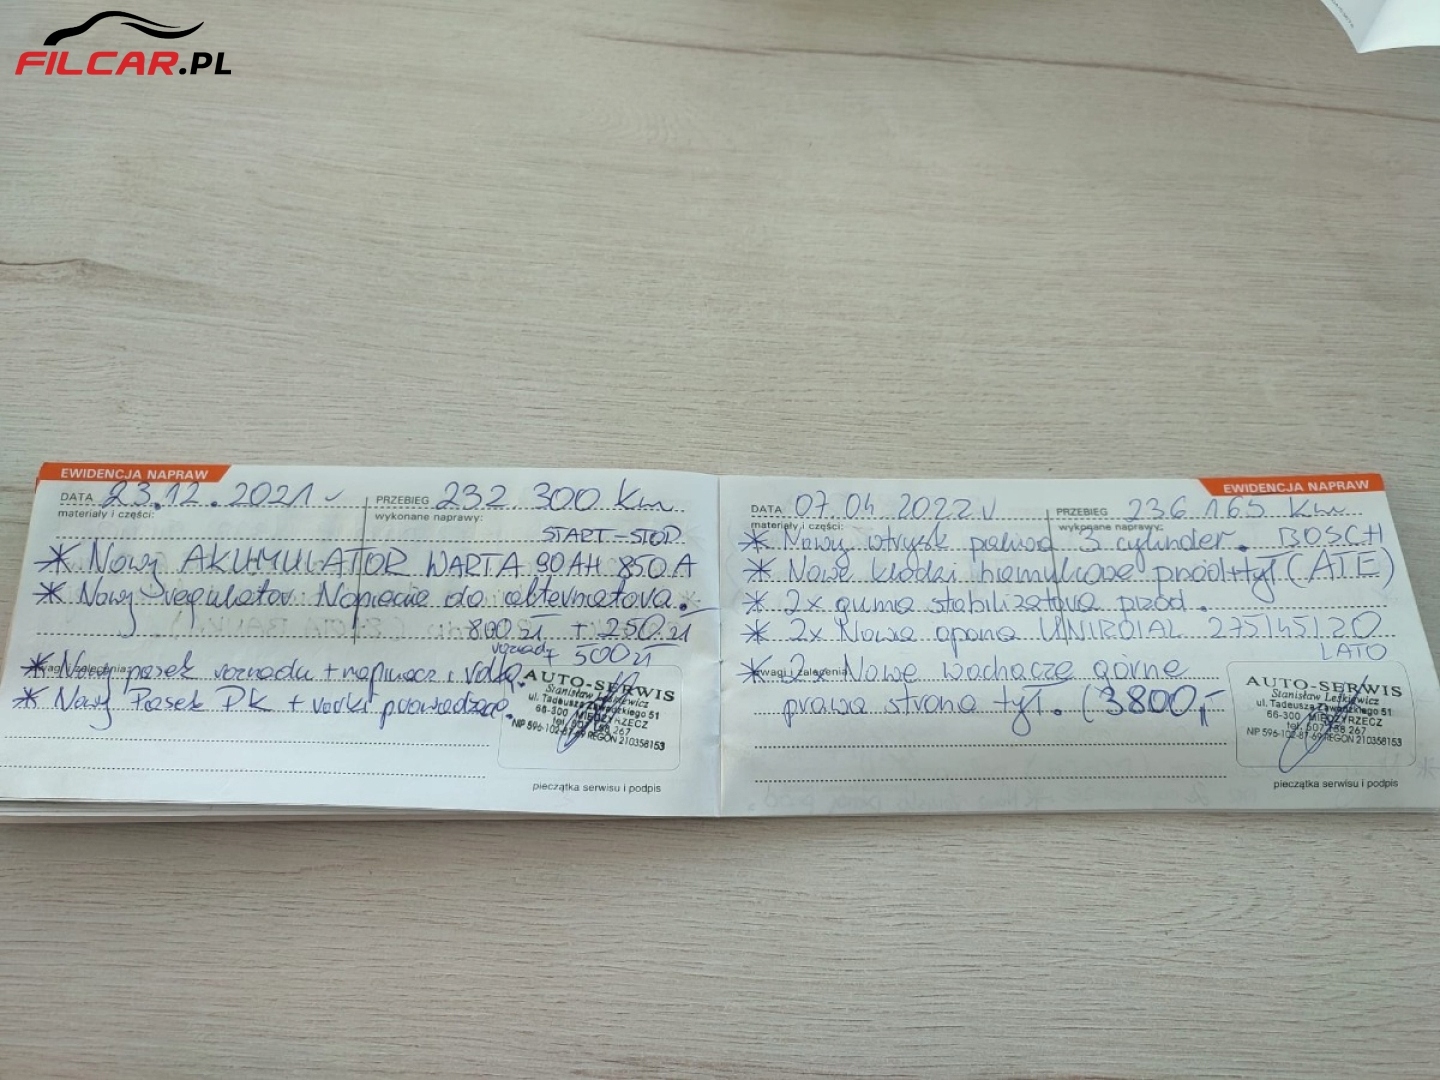 FILCAR.PL
EWIDENCJA NAPRAW
DATA 23.12.2021 PRZEBIEG 232.300 Km
materiały i części: wykonane naprawy:
START-STOP
* Nowy AKUMULATOR WARTA 90AH 850A
* Nowy regulator Napięcia do alternatora.
800 zł + 250 zł
rozrząd + 500 zł
uwagi i zalecenia:
* Nowy pasek rozrządu + napinacz i rolka.
* Nowy Pasek PK + rolki prowadzące.
AUTO-SERWIS
Stanisław Leśkiewicz
ul. Tadeusza Zawadzkiego 51
66-300 MIĘDZYRZECZ
NIP 596-102-87-69 REGON 210358153
pieczątka serwisu i podpis
EWIDENCJA NAPRAW
DATA 07.04.2022 PRZEBIEG 236 165 Km
materiały i części: wykonane naprawy:
* Nowy wtrysk paliwa 3 cylinder. BOSCH
* Nowe klocki hamulcowe przód+tył (ATE)
* 2x guma stabilizatora przód.
* 2x Nowa opona UNIROIAL 275/45/20
LATO
uwagi i zalecenia:
* 2x Nowe wachacze górne
prawa strona tył. (3800,-
AUTO-SERWIS
Stanisław Leśkiewicz
ul. Tadeusza Zawadzkiego 51
66-300 MIĘDZYRZECZ
NIP 596-102-87-69 REGON 210358153
pieczątka serwisu i podpis